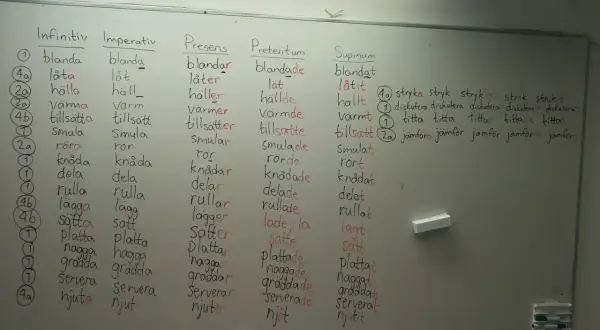 Infinitiv Imperativ Presens Preteritum Supinum
① blanda blanda blandar blandade blandat
④a låta låt låter lät låtit
②a hälla häll_ häller hällde hällt
②a värma värm värmer värmde värmt
④b tillsätta tillsätt tillsätter tillsatte tillsatt
① smula smula smular smulade smulat
②a röra rör rör rörde rört
① knåda knåda knådar knådade knådat
① dela dela delar delade delat
① rulla rulla rullar rullade rullat
④b lägga lägg lägger lade, la lagt
④b sätta sätt sätter satte satt
① platta platta plattar plattade plattat
① nagga nagga naggar naggade naggat
① grädda grädda gräddar gräddade gräddat
① servera servera serverar serverade serverat
④a njuta njut njuter njöt njutit
④a stryka stryk stryk
① diskutera diskutera diskutera diskutera diskutera
① titta titta titta titta titta
②a jämföra jämför jämför jämför jämför